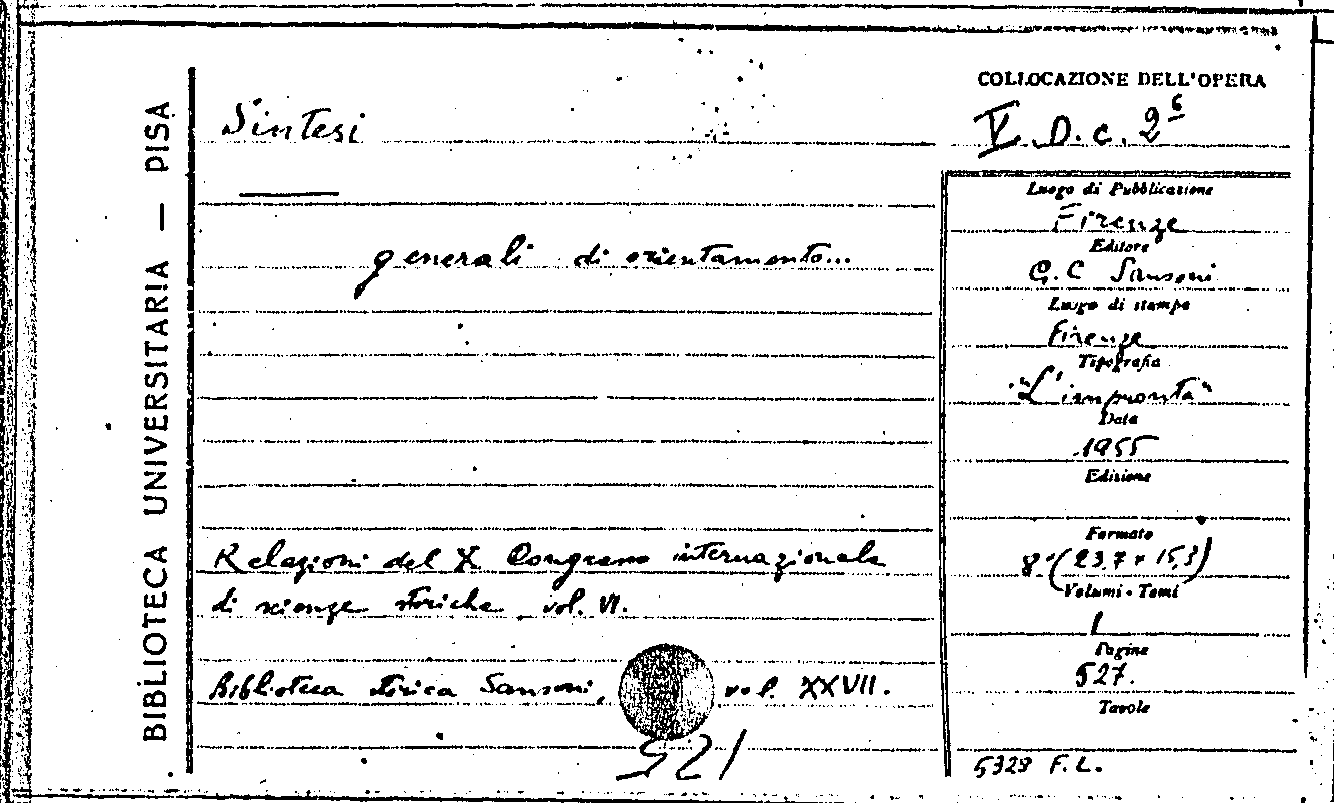 BIBLIOTECA UNIVERSITARIA — PISA
Sintesi
generali di orientamento...
Relazioni del X Congresso internazionale
di scienze storiche vol. VI.
Biblioteca storica Sansoni, vol. XXVII.
521
COLLOCAZIONE DELL'OPERA
V. D. c. 2⁶
Luogo di Pubblicazione
Firenze
Editore
G. C Sansoni
Luogo di stampa
Firenze
Tipografia
"L'impronta"
Data
1955
Edizione
Formato
8° (23,7 × 15,3)
Volumi - Tomi
1
Pagine
527.
Tavole
5328 F. L.